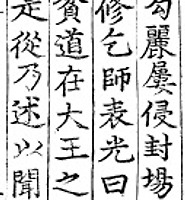 勾麗屢侵封場
修乞師表光曰
貧道在大王之
是從乃述以聞